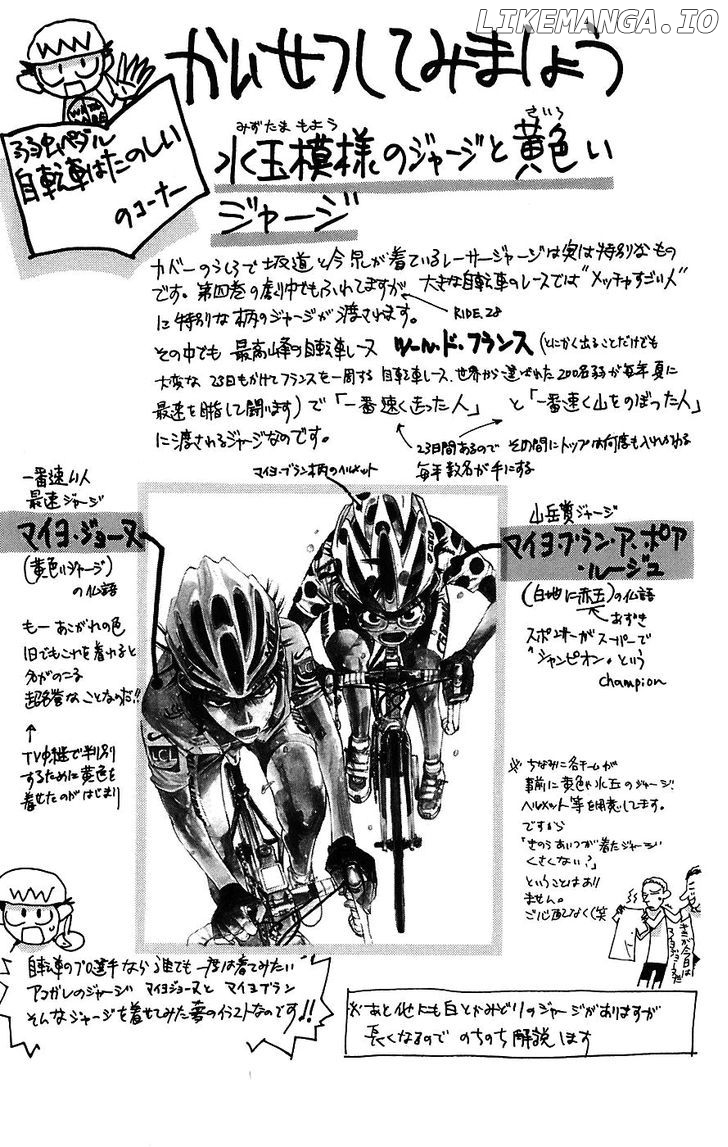 LIKEMANGA.IO
かいせつしてみましょう
弱虫ペダル
自転車はたのしい
のコーナー
みずたまもよう きいろ
水玉模様のジャージと黄色い
ジャージ
カバーのうしろで坂道と今泉が着ているレーサージャージは実は特別なもの
です。第四巻の劇中でもふれてますが 大きな自転車のレースでは"メッチャすごい人"
に特別な柄のジャージが渡されます。
RIDE.28
その中でも 最高峰の自転車レース ツール・ド・フランス (とにかく出ることだけでも
大変な 23日もかけてフランスを一周する 自転車レース、世界から選ばれた200名弱が毎年夏に
最速を目指して闘います)で「一番速く走った人」 と「一番速く山をのぼった人」
に渡されるジャージなのです。
23日間あるので その間にトップは何度も入れかわる
毎年数名が手にする
マイヨ・ブラン柄のヘルメット
一番速い人
最速ジャージ
マイヨ・ジョーヌ
(黄色いジャージ)
の仏語
もー あこがれの色
1日でもこれを着れると
名がのこる
超名誉なことなのだ!!
↑
TV中継で判別
するために黄色を
着せたのがはじまり
山岳賞ジャージ
マイヨ・ブラン・ア・ポア
・ルージュ
(白地に赤玉)の仏語
あずき
スポンサーがスーパーで
"シャンピオン"という
champion
LCL
※ちなみに各チームが
事前に黄色や水玉のジャージ、
ヘルメット等を用意してます。
ですから
「きのうあいつが着たジャージ
くさくない?」
ということはあり
ません。
ご心配なく(笑
自転車のプロ選手なら誰でも一度は着てみたい
アコガレのジャージ マイヨジョーヌと マイヨブラン
そんなジャージを着せてみた夢のイラストなのです!!
※あと他にも白とかみどりのジャージがありますが
長くなるので のちのち解説します